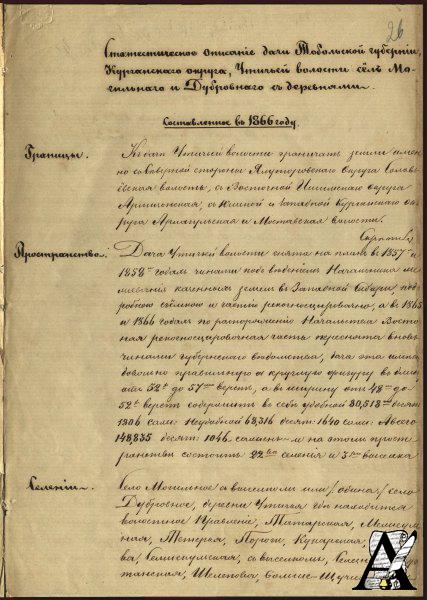 26
Статистическое описаніе дачи Тобольской губерніи,
Курганскаго округа, Утичьей волости сёлъ Мо-
гильнаго и Дубровнаго съ деревнями.
Составленное въ 1866 году.
Границы. Къ дачѣ Утичьей волости граничатъ земли
со Сѣверной стороны Ялуторовскаго Округа
волость, съ Восточной Ишимскаго округа
Армизонская, съ Южной и Западной Курганскаго ок-
руга и Моставская волости.
Пространство. Дача Утичьей волости снята на планъ въ 1857 и
1858 годахъ чинами подъ вѣденіемъ Начальника
казенныхъ земель въ Западной Сибири под-
робною съёмкою и частью рекогносцировкою, а въ 1865
и 1866 годахъ по распоряженію Начальства Восточ-
ная рекогносцировочная часть переснята вновь
чинами губернскаго вѣдомства, дача эта имѣетъ
довольно правильную и круглую фигуру въ длину
52 до 57 верстъ, а въ ширину отъ 48 до
52 верстъ содержитъ въ себѣ удобной 80,518 десят:
1306 саж: Неудобной 68,316 десят: 1640 саж: А всего
148,835 десят: 1046 сажень и на этомъ простр-
ранствѣ состоитъ 22 селенія и 3 выселка
Селеніи. Село Могильное съ выселкомъ село
Дубровное, деревни Утичья гдѣ находится
волостное Правленіе, Татарская,
ная, Тетерья, Пороги,
ва, съ выселкомъ,
танская, Шелепова,
А